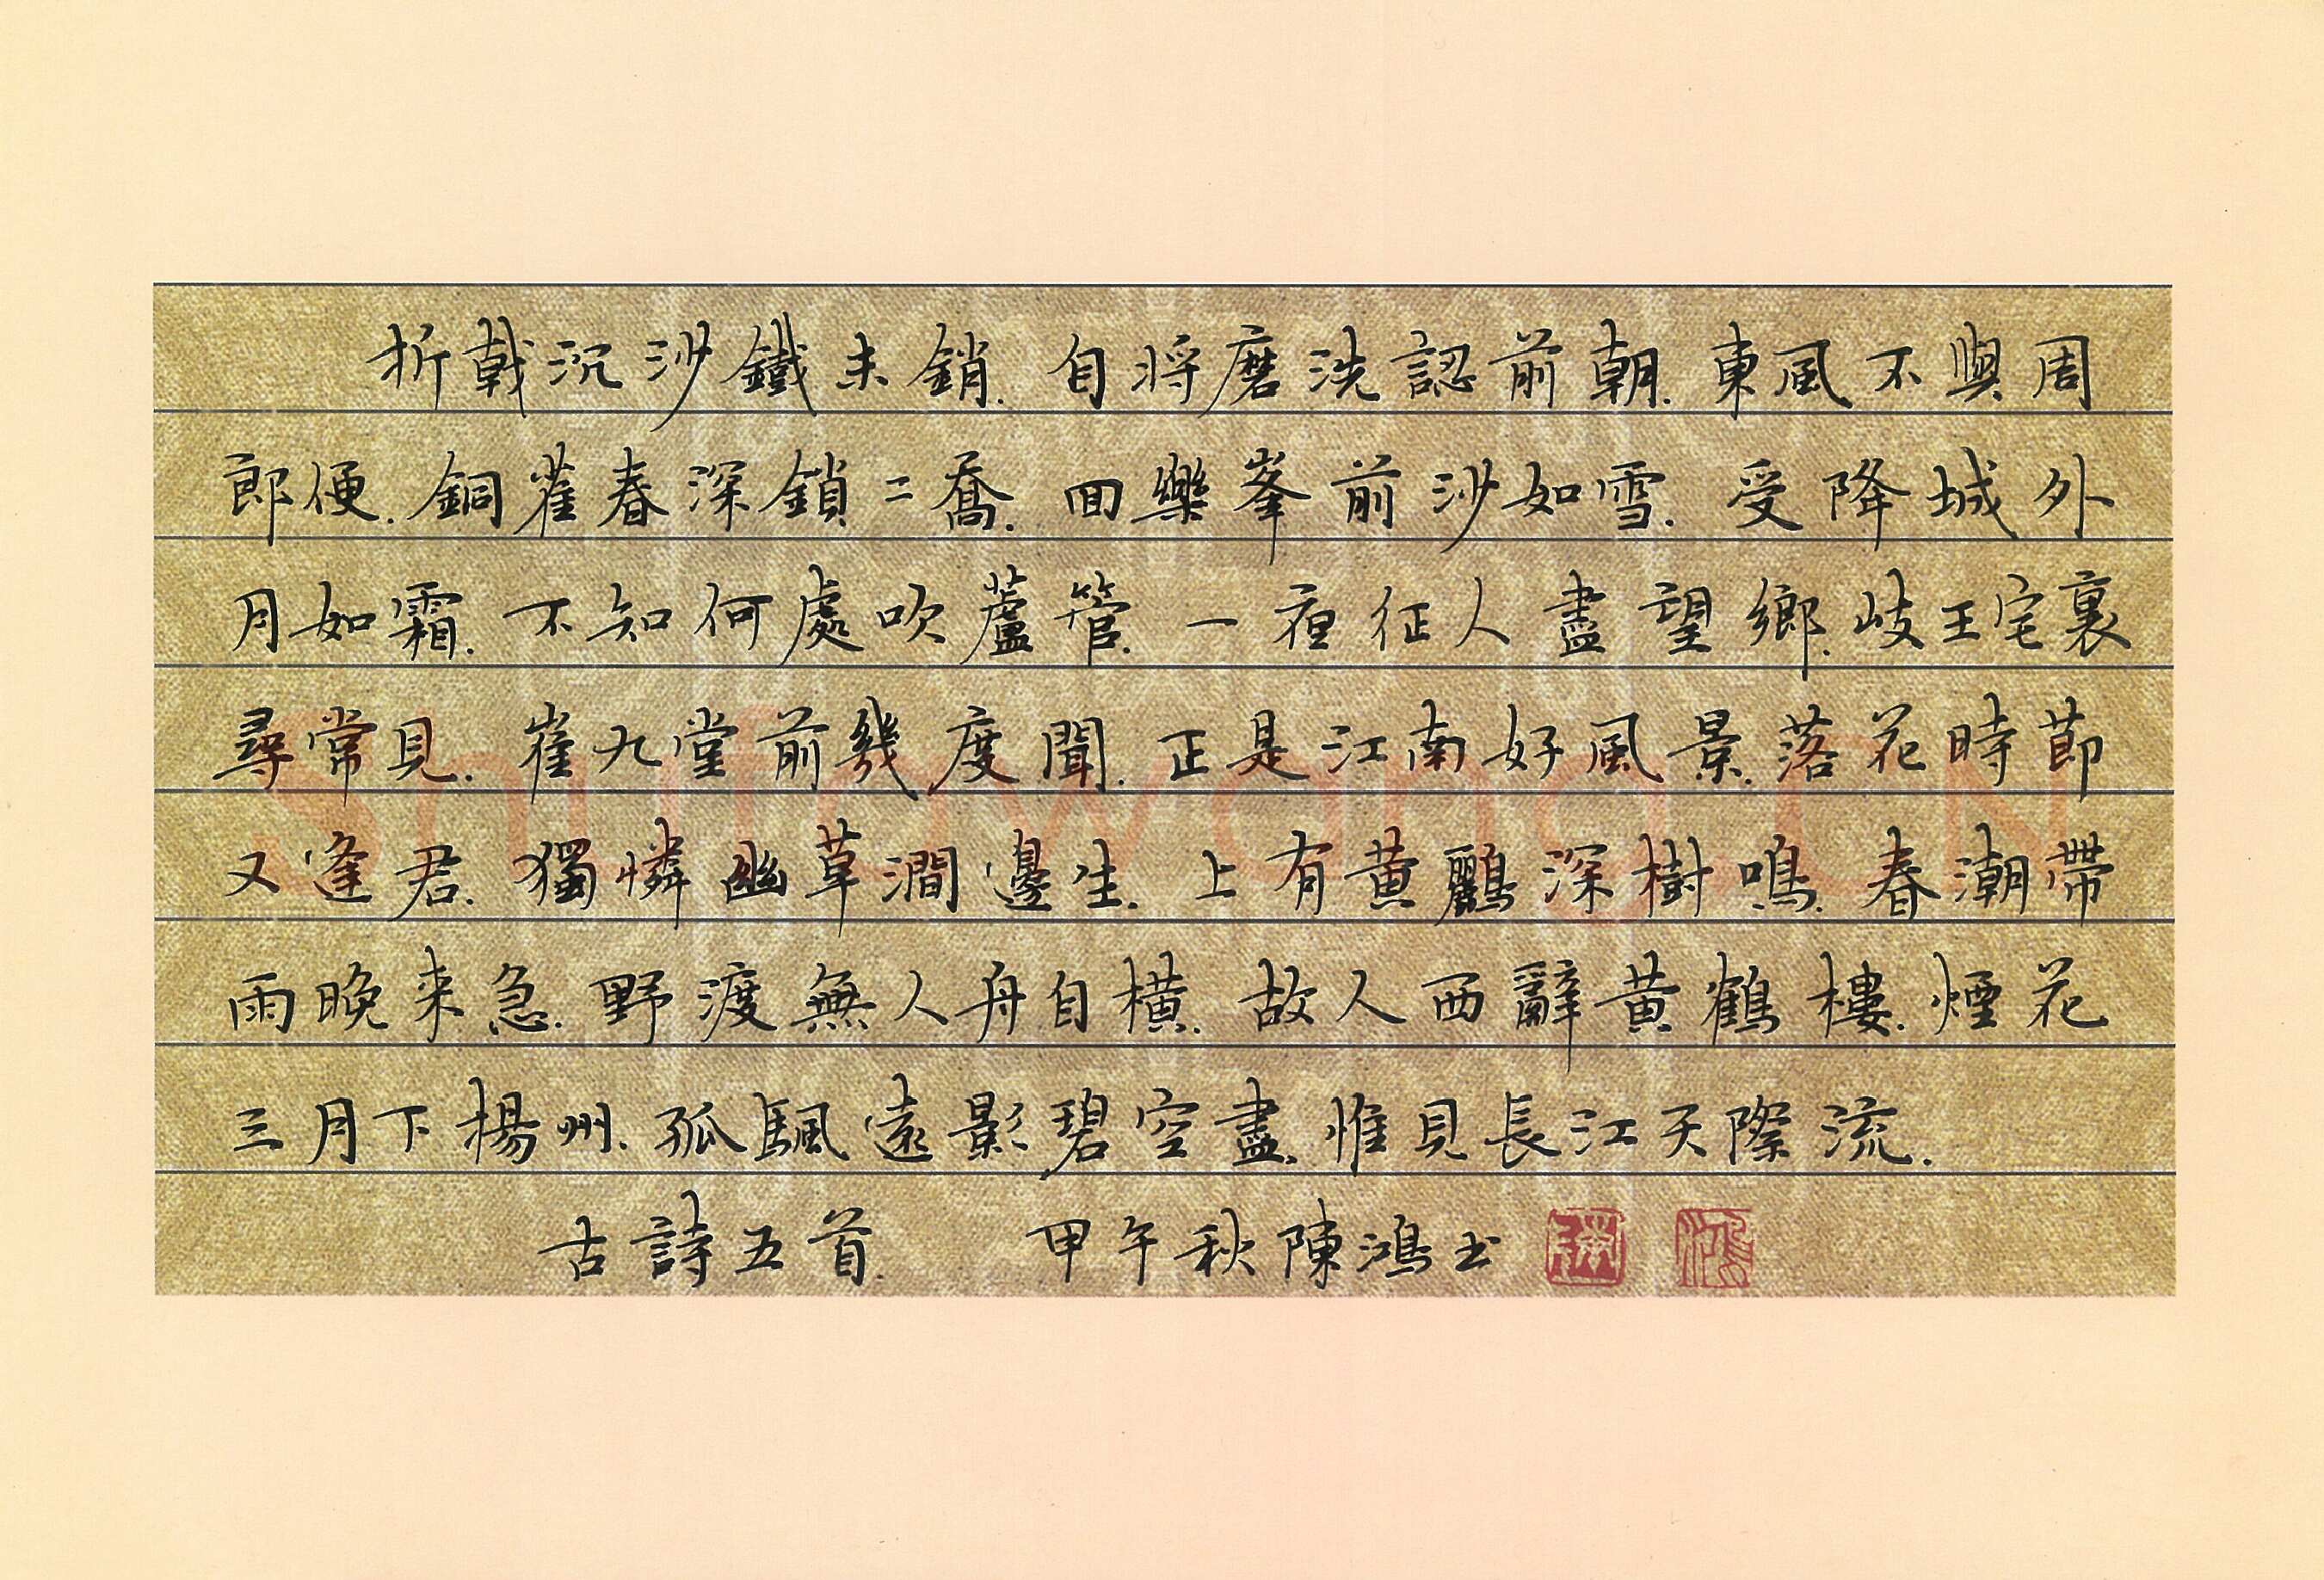 折戟沉沙鐵未銷.自將磨洗認前朝.東風不與周
郎便.銅雀春深鎖二喬.回樂峯前沙如雪.受降城外
月如霜.不知何處吹蘆管.一夜征人盡望鄉.岐王宅裏
尋常見.崔九堂前幾度聞.正是江南好風景.落花時節
又逢君.獨憐幽草澗邊生.上有黃鸝深樹鳴.春潮帶
雨晚来急.野渡無人舟自橫.故人西辭黃鶴樓.煙花
三月下楊州.孤颿遠影碧空盡.惟見長江天際流.
古詩五首.甲午秋陳鴻书
陳 鴻
Shufawang.CN